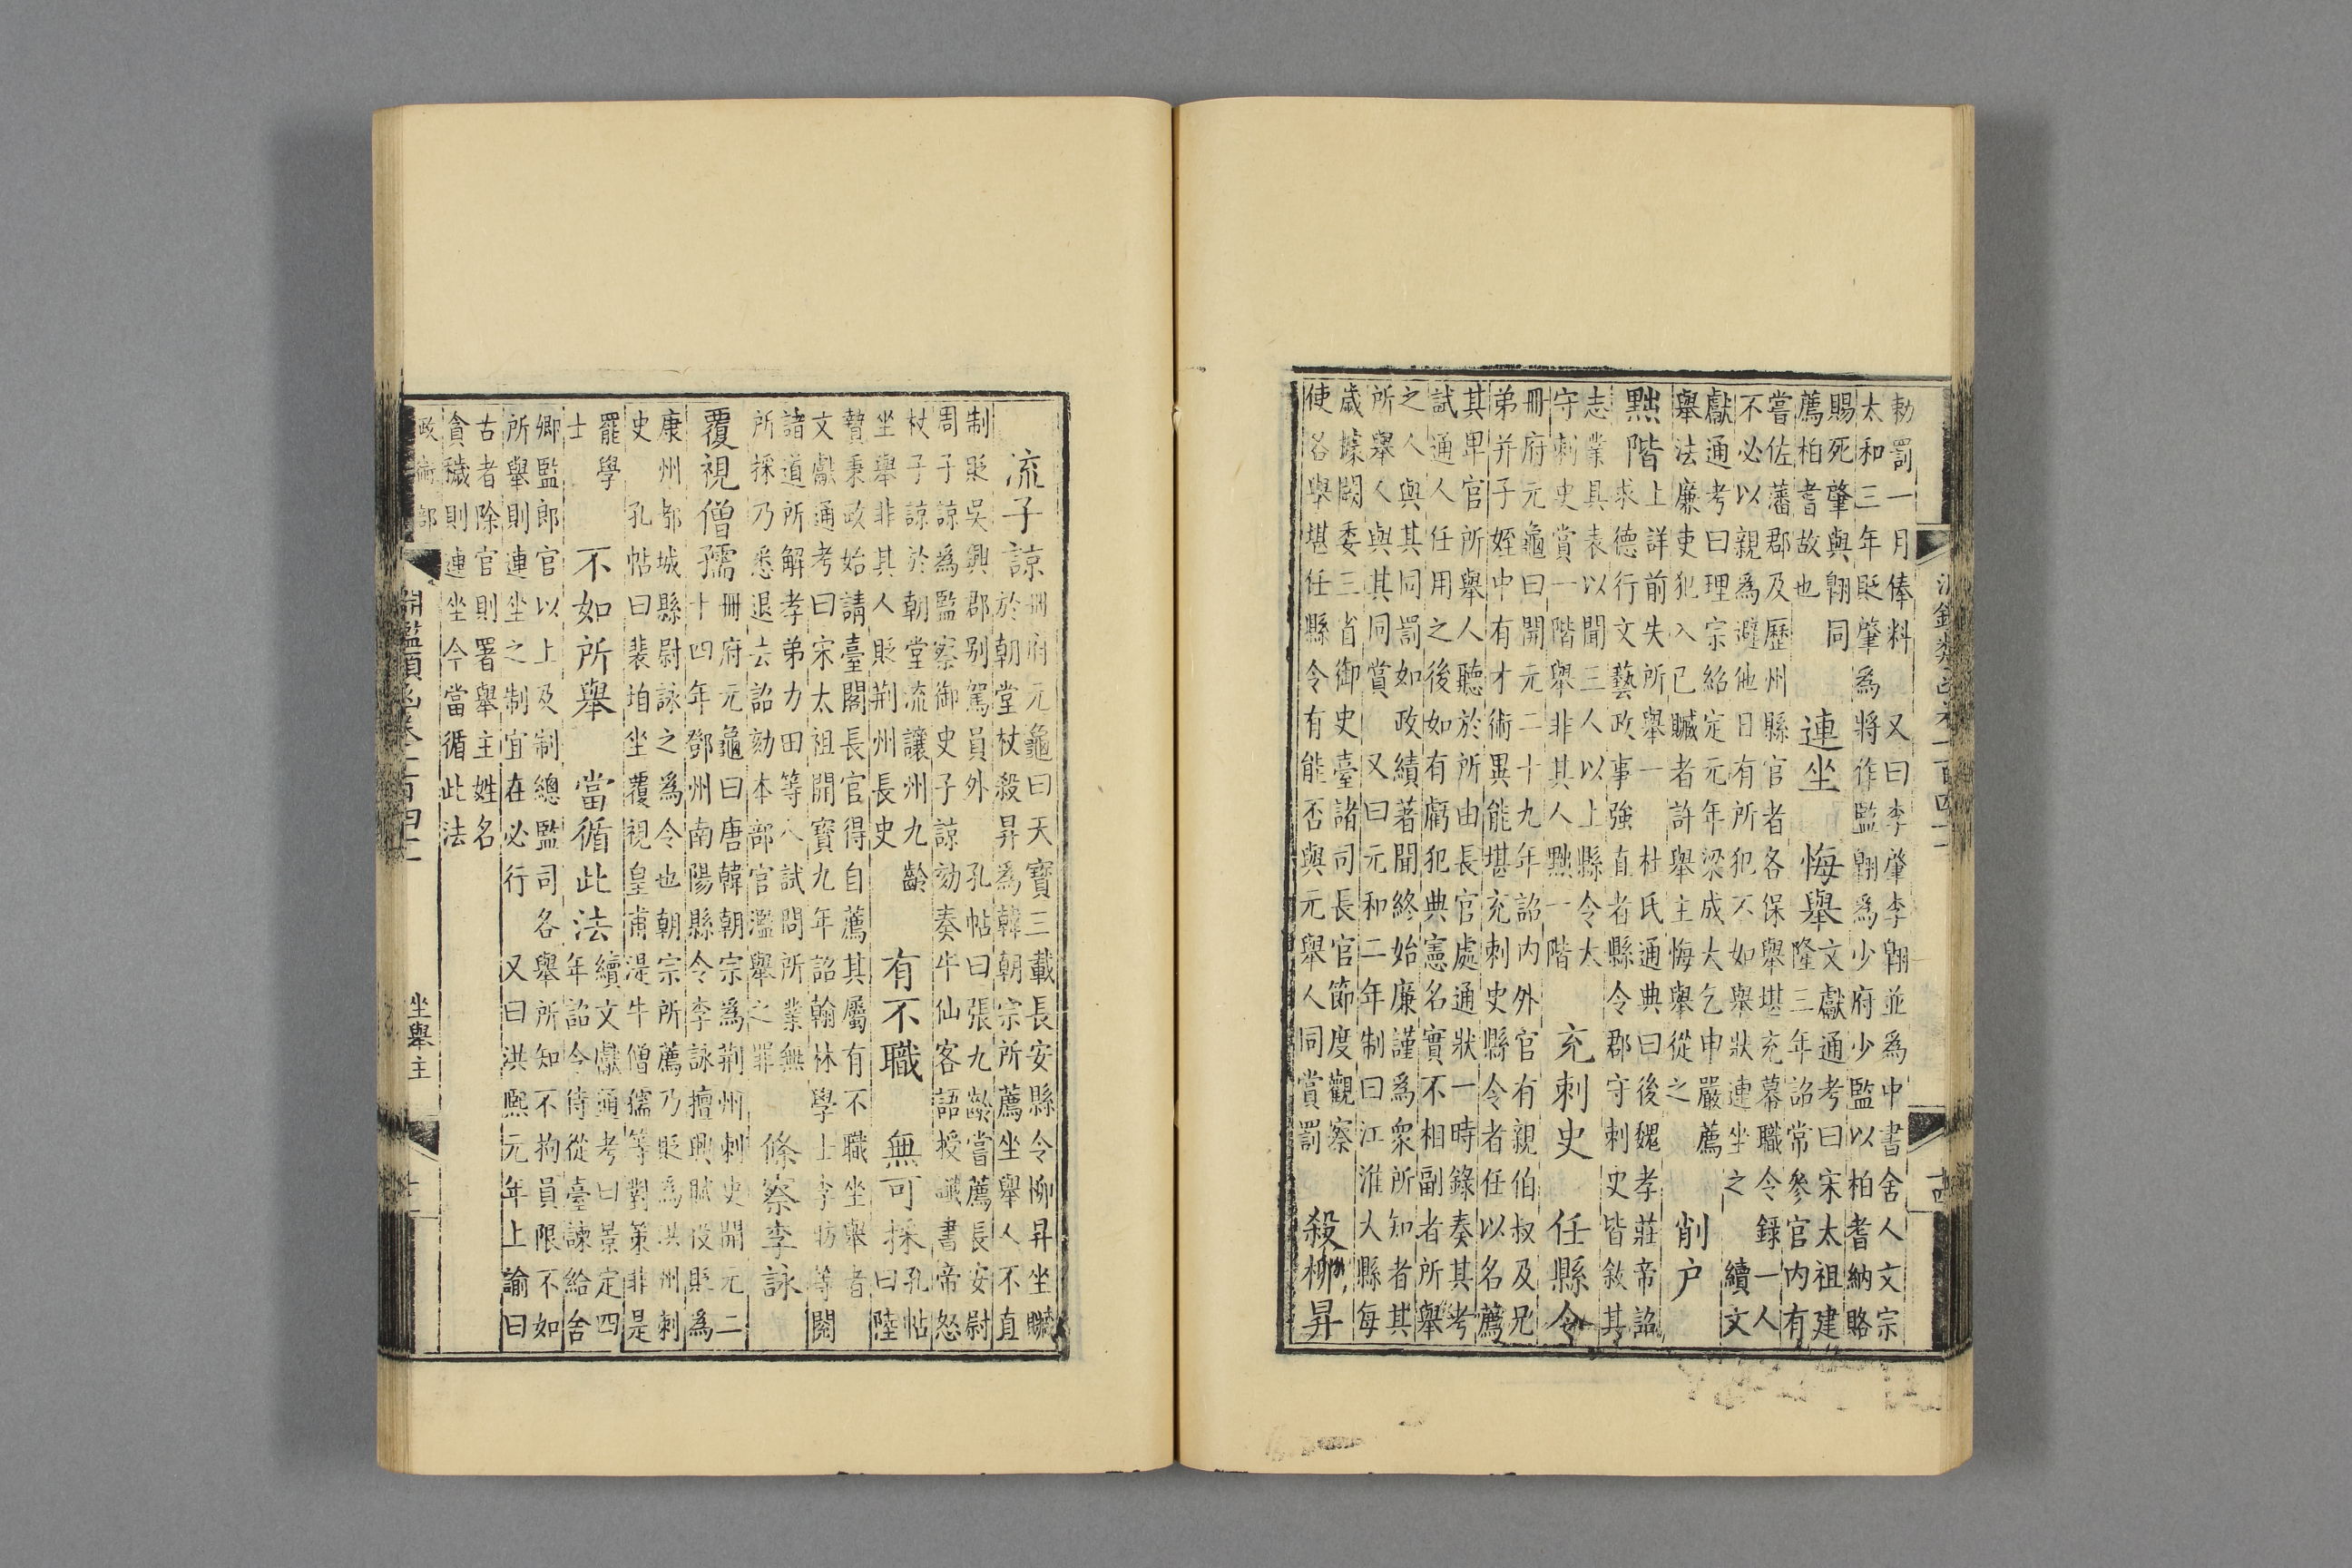 勅罰一月俸料　又曰李肇李翱並為中書舍人文宗
太和三年貶肇為將作監翱為少府少監以柏耆納賂
賜死肇與翱同
薦柏耆故也　連坐　悔舉
文獻通考曰宋太祖建
隆三年詔常參官內有
嘗佐藩郡及歷州縣官者各保舉堪充幕職令錄一人
不必以親為避他日有所犯不如舉狀連坐之　續文
獻通考曰理宗紹定元年梁成大乞申嚴薦
舉法廉吏犯入己贓者許舉主悔舉從之　削戶
黜階
上詳前失所舉一　杜氏通典曰後魏孝莊帝詔
求德行文藝政事強直者縣令郡守刺史皆敘其
志業具表以聞三人以上縣令太
守刺史賞一階舉非其人黜一階　充刺史　任縣令
冊府元龜曰開元二十九年詔內外官有親伯叔及兄
弟并子姪中有才術異能堪充刺史縣令者任以名薦
其卑官所舉人聽於所由長官處通狀一時錄奏其考
試通人任用之後如有虧犯典憲名實不相副者所舉
之人與其同罰如政績著聞終始廉謹為眾所知者其
所舉人與其同賞　又曰元和二年制曰江淮大縣每
歲據闕委三省御史臺諸司長官節度觀察
使各舉堪任縣令有能否與元舉人同賞罰　殺柳昇
淵鑑類函卷一百四十一
十四
流子諒
冊府元龜曰天寶三載長安縣令柳昇坐贓
於朝堂杖殺昇為韓朝宗所薦坐舉人不直
制貶吳興郡別駕員外　孔帖曰張九齡嘗薦長安尉
周子諒為監察御史子諒劾奏牛仙客語授讖書帝怒
杖子諒於朝堂流讓州九齡
坐舉非其人貶荊州長史　有不職　無可採
孔帖
曰陸
贄秉政始請臺閣長官得自薦其屬有不職坐舉者
文獻通考曰宋太祖開寶九年詔翰林學士李昉等閱
諸道所解孝弟力田等人試問所業無
所採乃悉退去詔劾本部官濫舉之罪　條察李詠
覆視僧孺
冊府元龜曰唐韓朝宗為荊州刺史開元二
十四年鄧州南陽縣令李詠擅興賦役貶為
康州都城縣尉詠之為令也朝宗所薦乃貶為洪州刺
史　孔帖曰裴垍坐覆視皇甫湜牛僧孺等對策非是
罷學
士　不如所舉　當循此法
續文獻通考曰景定四
年詔今侍從臺諫給舍
卿監郎官以上及制總監司各舉所知不拘員限不如
所舉則連坐之制宜在必行　又曰洪熙元年上諭曰
古者除官則署舉主姓名
貪穢則連坐今當循此法
政術部
淵鑑類函卷一百四十一
坐舉主